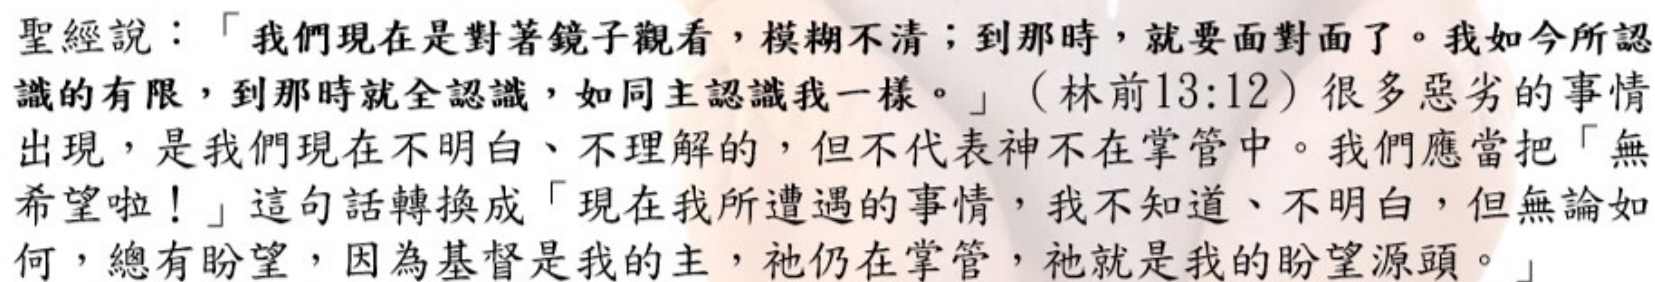 聖經說：「我們現在是對著鏡子觀看，模糊不清；到那時，就要面對面了。我如今所認
識的有限，到那時就全認識，如同主認識我一樣。」（林前13:12）很多惡劣的事情
出現，是我們現在不明白、不理解的，但不代表神不在掌管中。我們應當把「無
希望啦！」這句話轉換成「現在我所遭遇的事情，我不知道、不明白，但無論如
何，總有盼望，因為基督是我的主，祂仍在掌管，祂就是我的盼望源頭。」